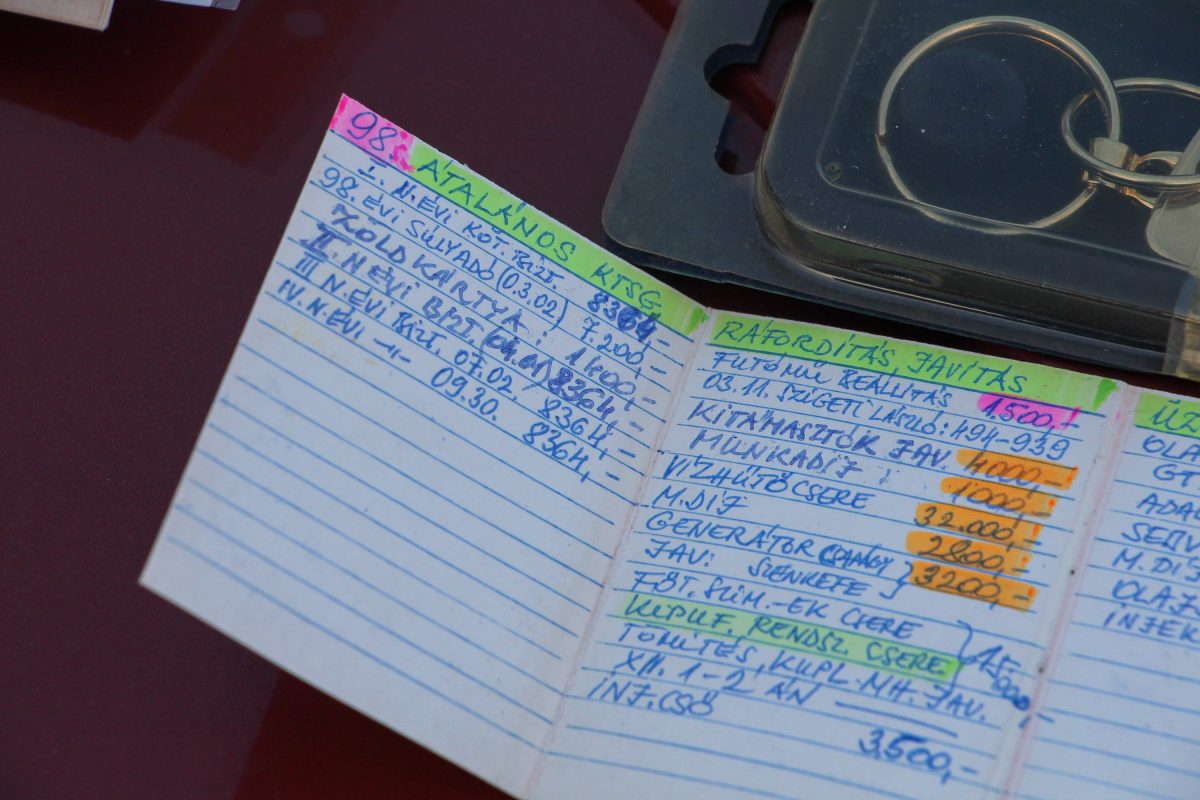 98. ÁTALÁNOS KTSG.
I. N.ÉVI KÖT. BIZT. 8364,-
98. ÉVI SÚLYADÓ (03.02) 7.200,-
ZÖLDKÁRTYA: 1400,-
II. N.ÉVI BIZT. (04.01) 8364,-
III N.ÉVI BIZT. 07.02. 8364,-
IV. N.ÉVI -"- 09.30. 8364,-
RÁFORDÍTÁS, JAVÍTÁS
FUTÓMŰ BEÁLLÍTÁS 1.500,-
03.11. SZIGETI LÁSZLÓ: 494-939
KITÁMASZTÓK JAV. 4000,-
MUNKADÍJ : 1000,-
VÍZHŰTŐCSERE 32.000,-
M.DÍJ 2800,-
GENERÁTOR
JAV: SZENKEFE } 3200,-
FŐT. SZIM.-EK CSERE
KIPUF. RENDSZ. CSERE } 15000,-
TÖMÍTÉS, KUPL. MH. JAV.
XII. 1-2 ÁN
INJ.CSŐ 3.500,-
ÜZ
OLA
GT
ADA
M.DÍJ
OLAJ
INJEK